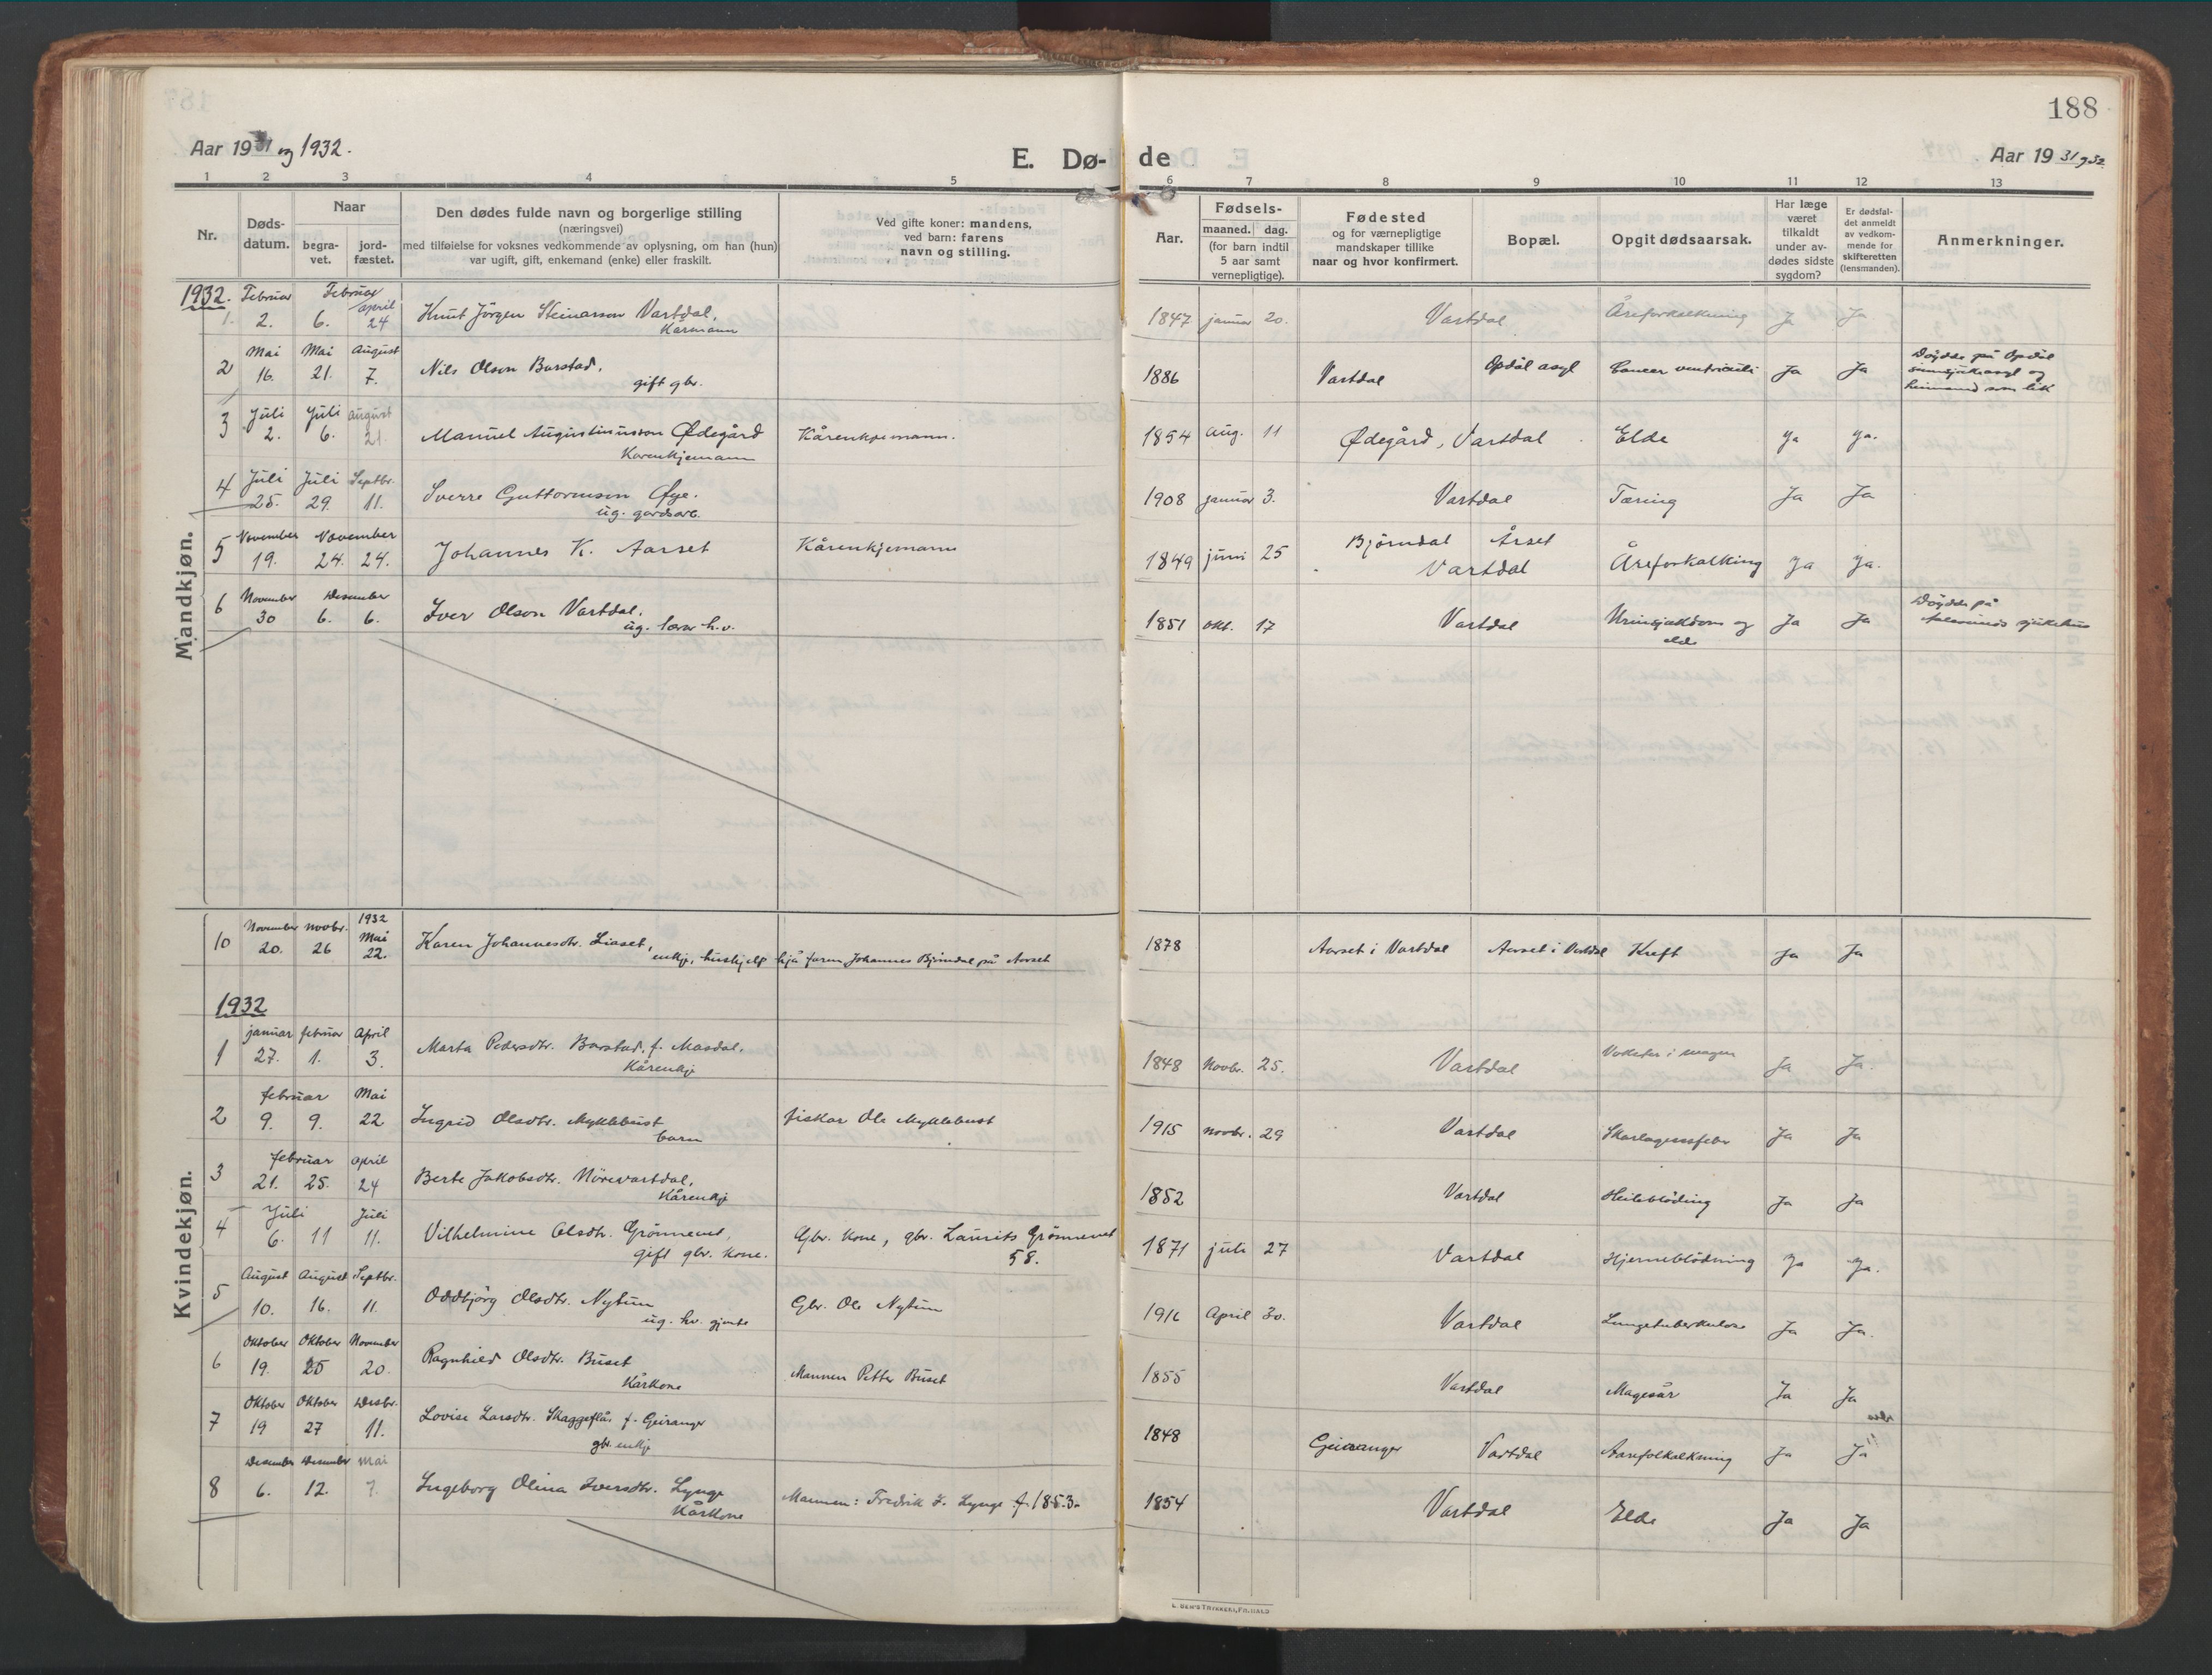 188
Aar 1931 og 1932.
E. Dø- de
Aar 1931 og 32.
1 2 3 4 5 6 7 8 9 10 11 12 13
Nr.
Døds-
datum.
Naar
begra-
vet.
jord-
fæstet.
Den dødes fulde navn og borgerlige stilling
(næringsvei)
med tilføielse for voksnes vedkommende av oplysning, om han (hun)
var ugift, gift, enkemand (enke) eller fraskilt.
Ved gifte koner: mandens,
ved barn: farens
navn og stilling.
Aar.
Fødsels-
maaned. dag.
(for barn indtil
5 aar samt
vernepligtige).
Fødested
og for værnepligtige
mandskaper tillike
naar og hvor konfirmert.
Bopæl.
Opgit dødsaarsak.
Har læge
været
tilkaldt
under av-
dødes sidste
sygdom?
Er dødsfal-
det anmeldt
av vedkom-
mende for
skifteretten
(lensmanden).
Anmerkninger.
Mandkjøn.
1932. Februar Februar april
1. 2. 6. 24 Knut Jörgen Steinarson Vartdal, 1847 januar 20. Vartdal Åreforkalkning Ja Ja
Kårmann
Mai Mai August
2 16. 21. 7. Nils Olson Barstad, 1886 Vartdal Opdöl asyl Cancer ventriculi Ja Ja
gift gbr.
Döydde på Opdöl
sinnsjukeasyl og
heimsend som lik
Juli Juli august
3 2. 6. 21. Manuel Augustinusson Ødegård Kårenkjemann. 1854 Aug. 11 Ødegård, Vartdal Elde Ja Ja.
Kårenkjemann
Juli Juli Septbr.
4 25. 29. 11. Sverre Guttormson Øye. 1908 januar 3. Vartdal Tæring Ja Ja
ug. gardsarb.
November November
5 19. 24. 24. Johannes K. Aarset Kårenkjemann 1849 juni 25 Bjørndal Årset
Vartdal Åreforkalking Ja Ja.
November Desember
6 30 6. 6. Iver Olson Vartdal. 1851 okt. 17 Vartdal Urinsjukdom og Ja Ja
elde
Döydde på
Aalesunds sjukehus
Kvindekjøn.
November novbr. 1932
Mai
10 20. 26 22. Karen Johannesdtr. Liaset, 1878 Aarset i Vartdal Aarset i Vartdal Kreft Ja Ja
enkje, hushjelp hjå faren Johannes Bjørndal på Aarset
1932
januar februar April
1 27. 1. 3. Marta Pedersdtr. Barstad, f. Masdal, 1848 Novbr. 25. Vartdal i magen Ja Ja.
Kårenkje
februar Mai
2 9. 9. 22 Ingrid Olsdtr. Myklebust fiskar Ole Myklebust 1915 novbr. 29 Vartdal Skarlagensfeber Ja Ja
barn
februar april
3 21. 25. 24 Berte Jakobsdtr. Nörevartdal, 1852 Vartdal Heilebløding Ja Ja
Kårenkje
Juli Juli
4 6. 11 11. Vilhelmine Olsdtr. Grönnevet, Gbr. kone, gbr. Laurits Grönnevet 1871 juli 27 Vartdal Hjerneblödning Ja Ja.
gift gbr. kone. 58.
August August Septbr.
5 10. 16. 11. Oddbjörg Olsdtr. Nytun Gbr. Ole Nytun 1916 April 30. Vartdal Lungetuberkulose Ja Ja.
ug. hv. gjente
Oktober Oktober November
6 19. 25 20. Ragnhild Olsdtr. Buset Mannen Petter Buset 1855 Vartdal Magesår Ja Ja
Kårkone
Oktober Oktober Desbr.
7 19 27 11. Lovise Larsdtr. Skaggeflå, f. Geiranger 1848 Geiranger Vartdal Aarefolkalkning Ja Ja
gbr. enkje
Desember Desember Mai
8 6. 12. 7. Ingeborg Olina Iversdtr. Lynge Mannen: Fredrik J. Lynge f. 1853. 1854 Vartdal Elde Ja Ja
Kårkone